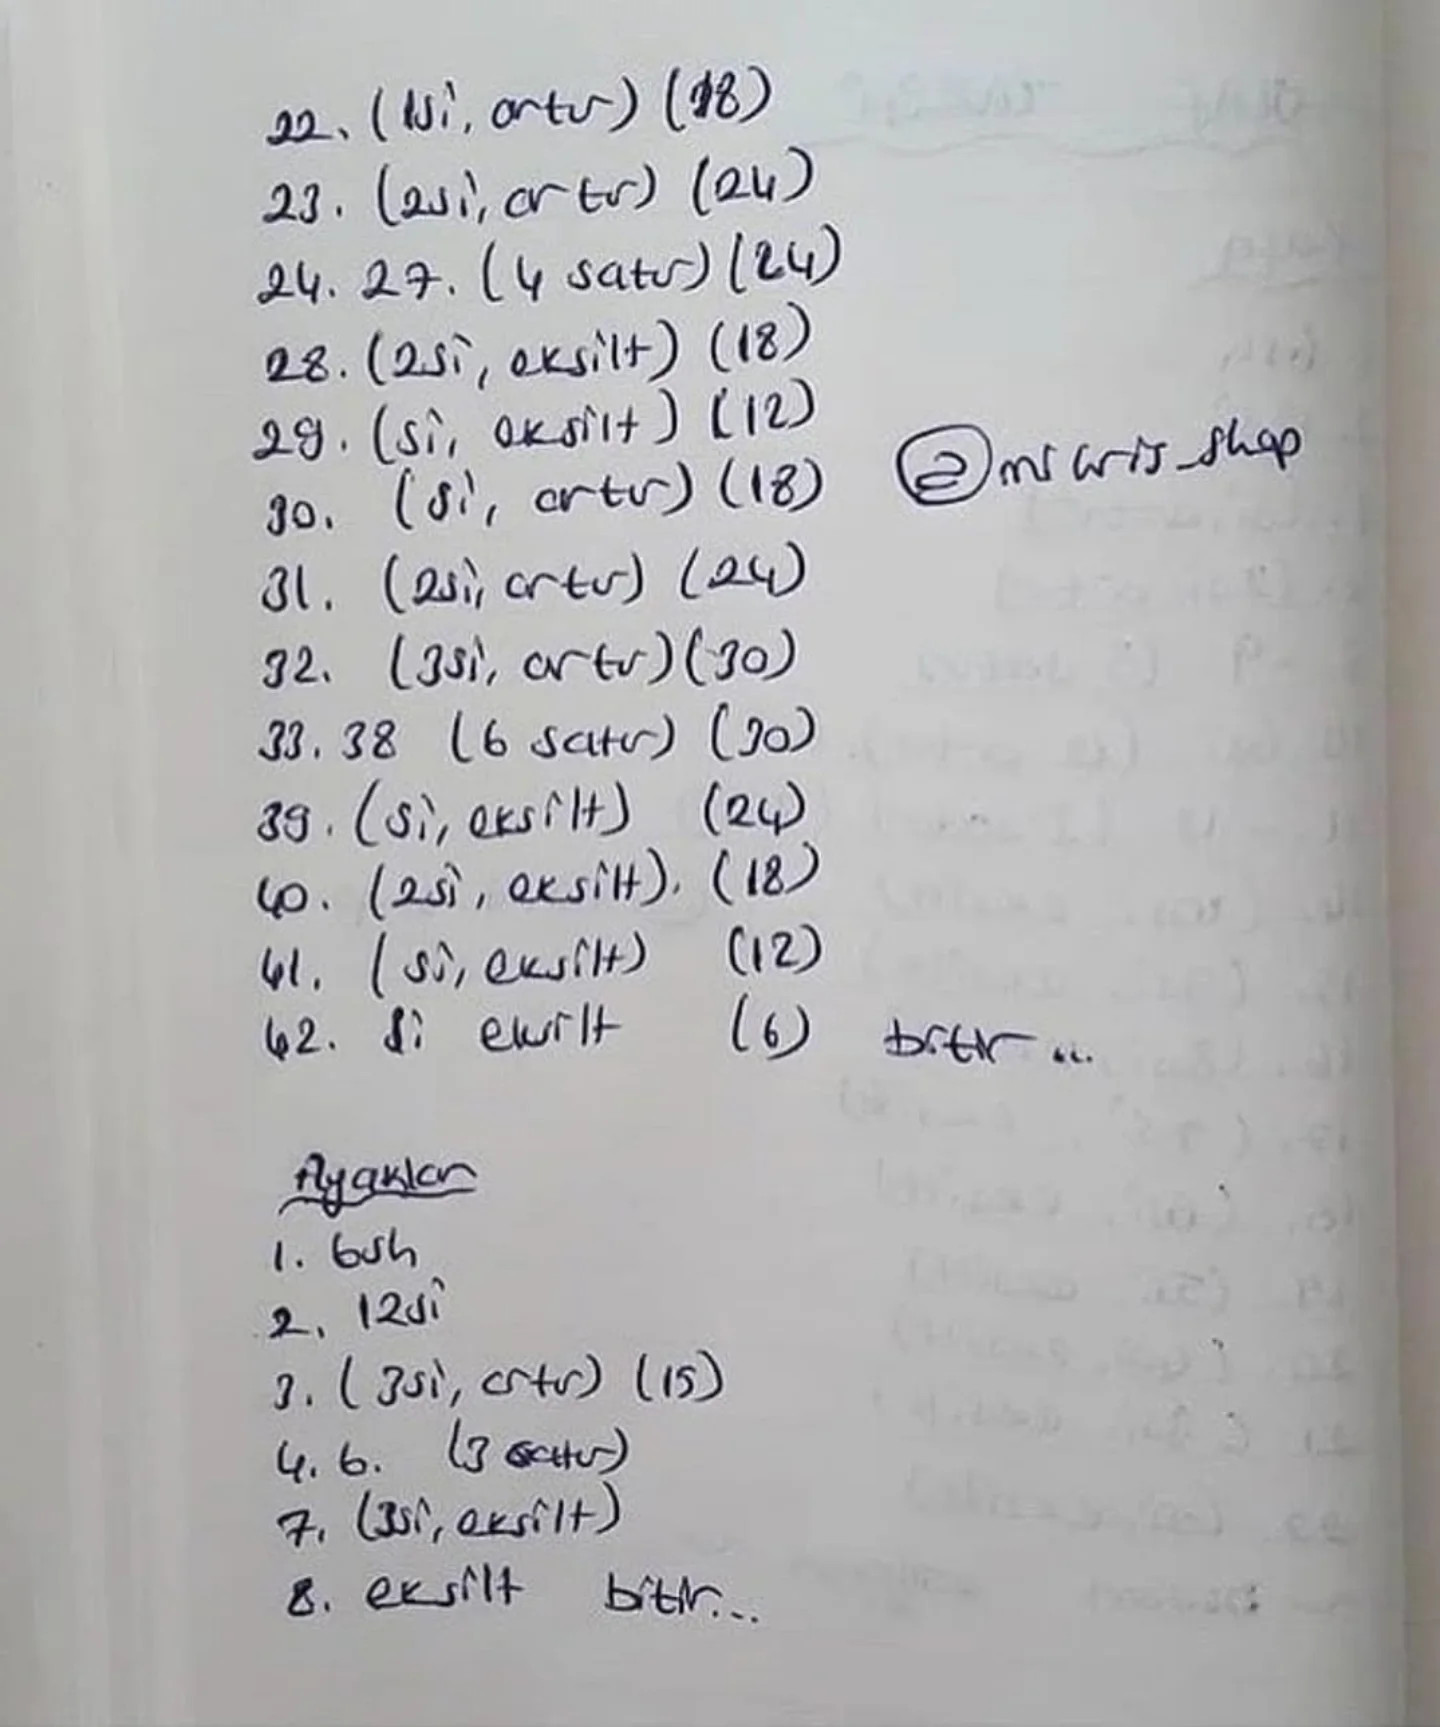 22. (1si, artır) (18)
23. (2si, artır) (24)
24. 27. (4 satır) (24)
28. (2si, eksilt) (18)
29. (si, eksilt) (12)
30. (si, artır) (18)
31. (2si, artır) (24)
32. (3si, artır) (30)
33. 38 (6 satır) (30)
39. (si, eksilt) (24)
40. (2si, eksilt). (18)
41. (si, eksilt) (12)
42. si eksilt (6) bitir...
Ayaklar
1. 6sh
2. 12si
3. (3si, artır) (15)
4. 6. (3 satır)
7. (3si, eksilt)
8. eksilt bitir...